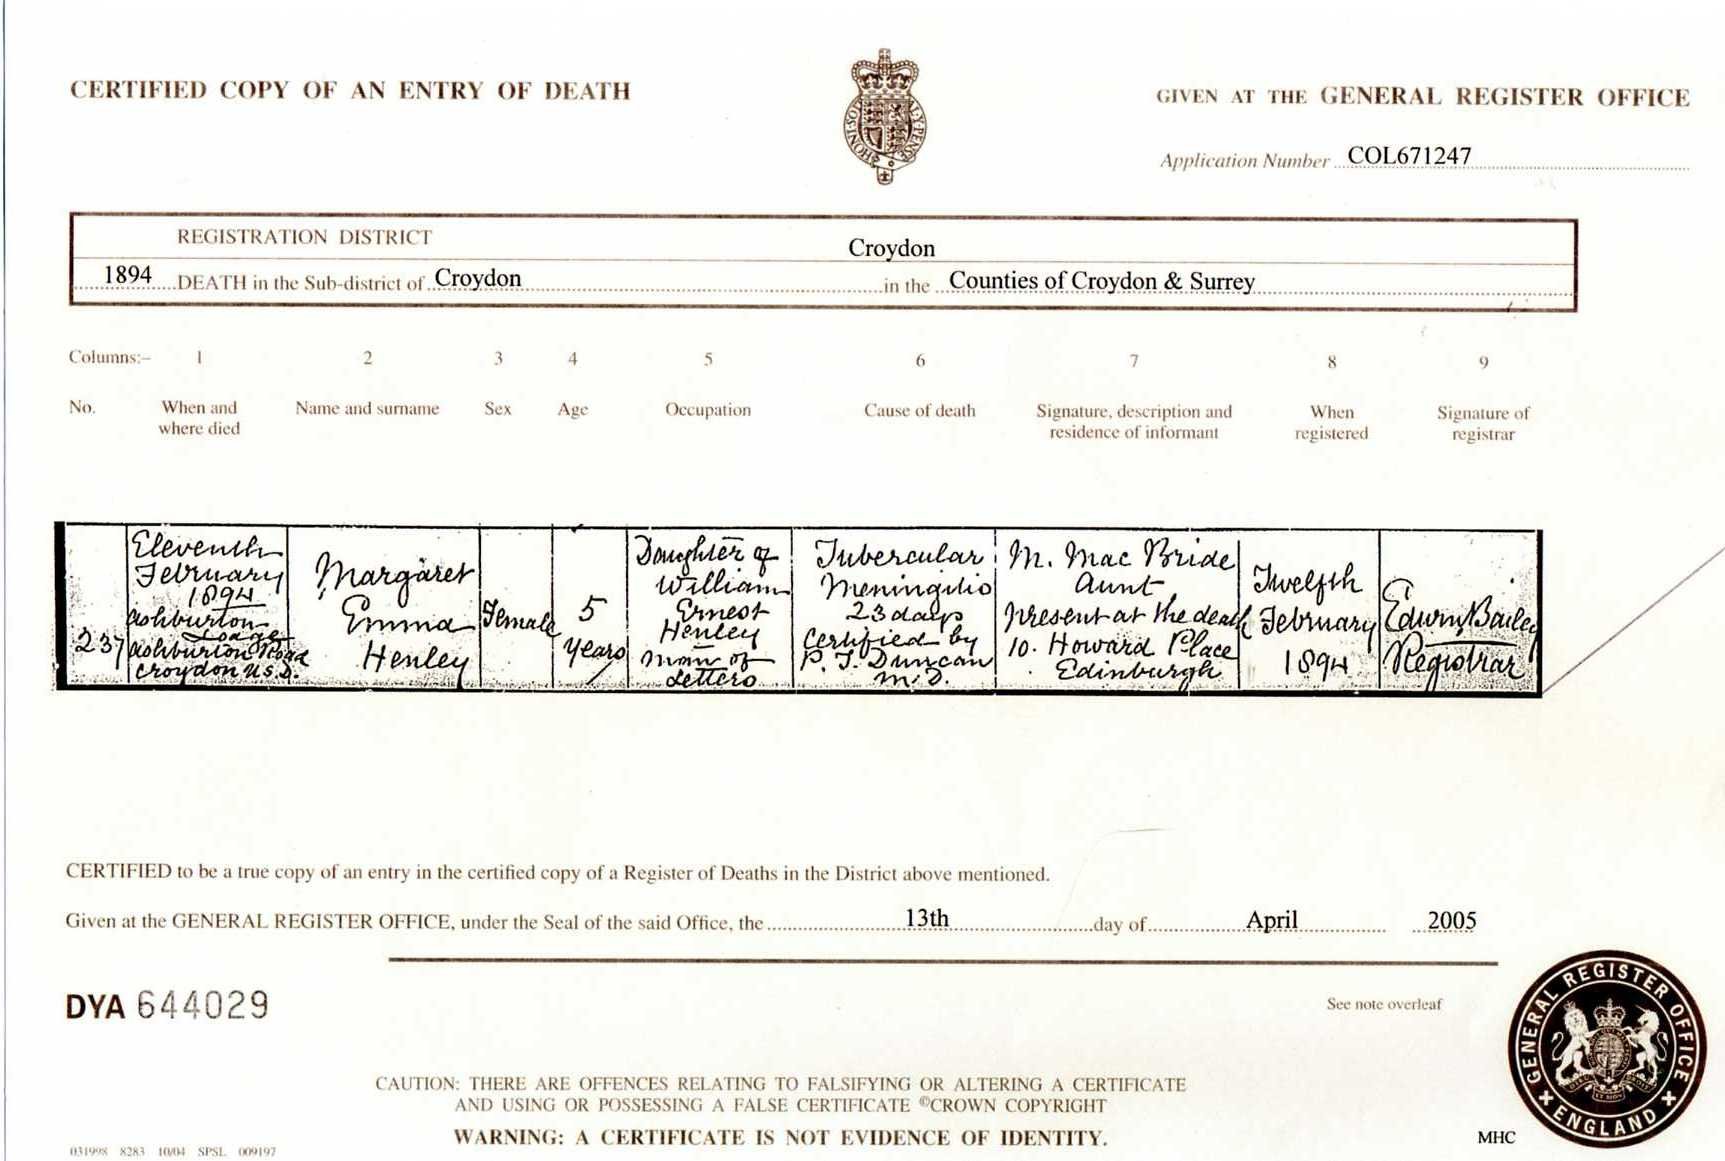 CERTIFIED COPY OF AN ENTRY OF DEATH
GIVEN AT THE GENERAL REGISTER OFFICE
Application Number COL671247
REGISTRATION DISTRICT Croydon
1894 DEATH in the Sub-district of Croydon in the Counties of Croydon & Surrey
Columns:– 1 2 3 4 5 6 7 8 9
No. When and where died Name and surname Sex Age Occupation Cause of death Signature, description and residence of informant When registered Signature of registrar
237
Eleventh
February
1894
Ashburton
Lodge
Ashburton Road
Croydon U.S.D.
Margaret
Emma
Henley
Female
5
years
Daughter of
William
Ernest
Henley
Man of
Letters
Tubercular
Meningitis
23 days
Certified by
P. T. Duncan
M.D.
M. Mac Bride
Aunt
Present at the death
10. Howard Place
Edinburgh
Twelfth
February
1894
Edwin Bailey
Registrar
CERTIFIED to be a true copy of an entry in the certified copy of a Register of Deaths in the District above mentioned.
Given at the GENERAL REGISTER OFFICE, under the Seal of the said Office, the 13th day of April 2005
DYA 644029
See note overleaf
GENERAL REGISTER OFFICE
ENGLAND
CAUTION: THERE ARE OFFENCES RELATING TO FALSIFYING OR ALTERING A CERTIFICATE
AND USING OR POSSESSING A FALSE CERTIFICATE ©CROWN COPYRIGHT
WARNING: A CERTIFICATE IS NOT EVIDENCE OF IDENTITY.
031998 8283 10/04 SPSL 009197
MHC